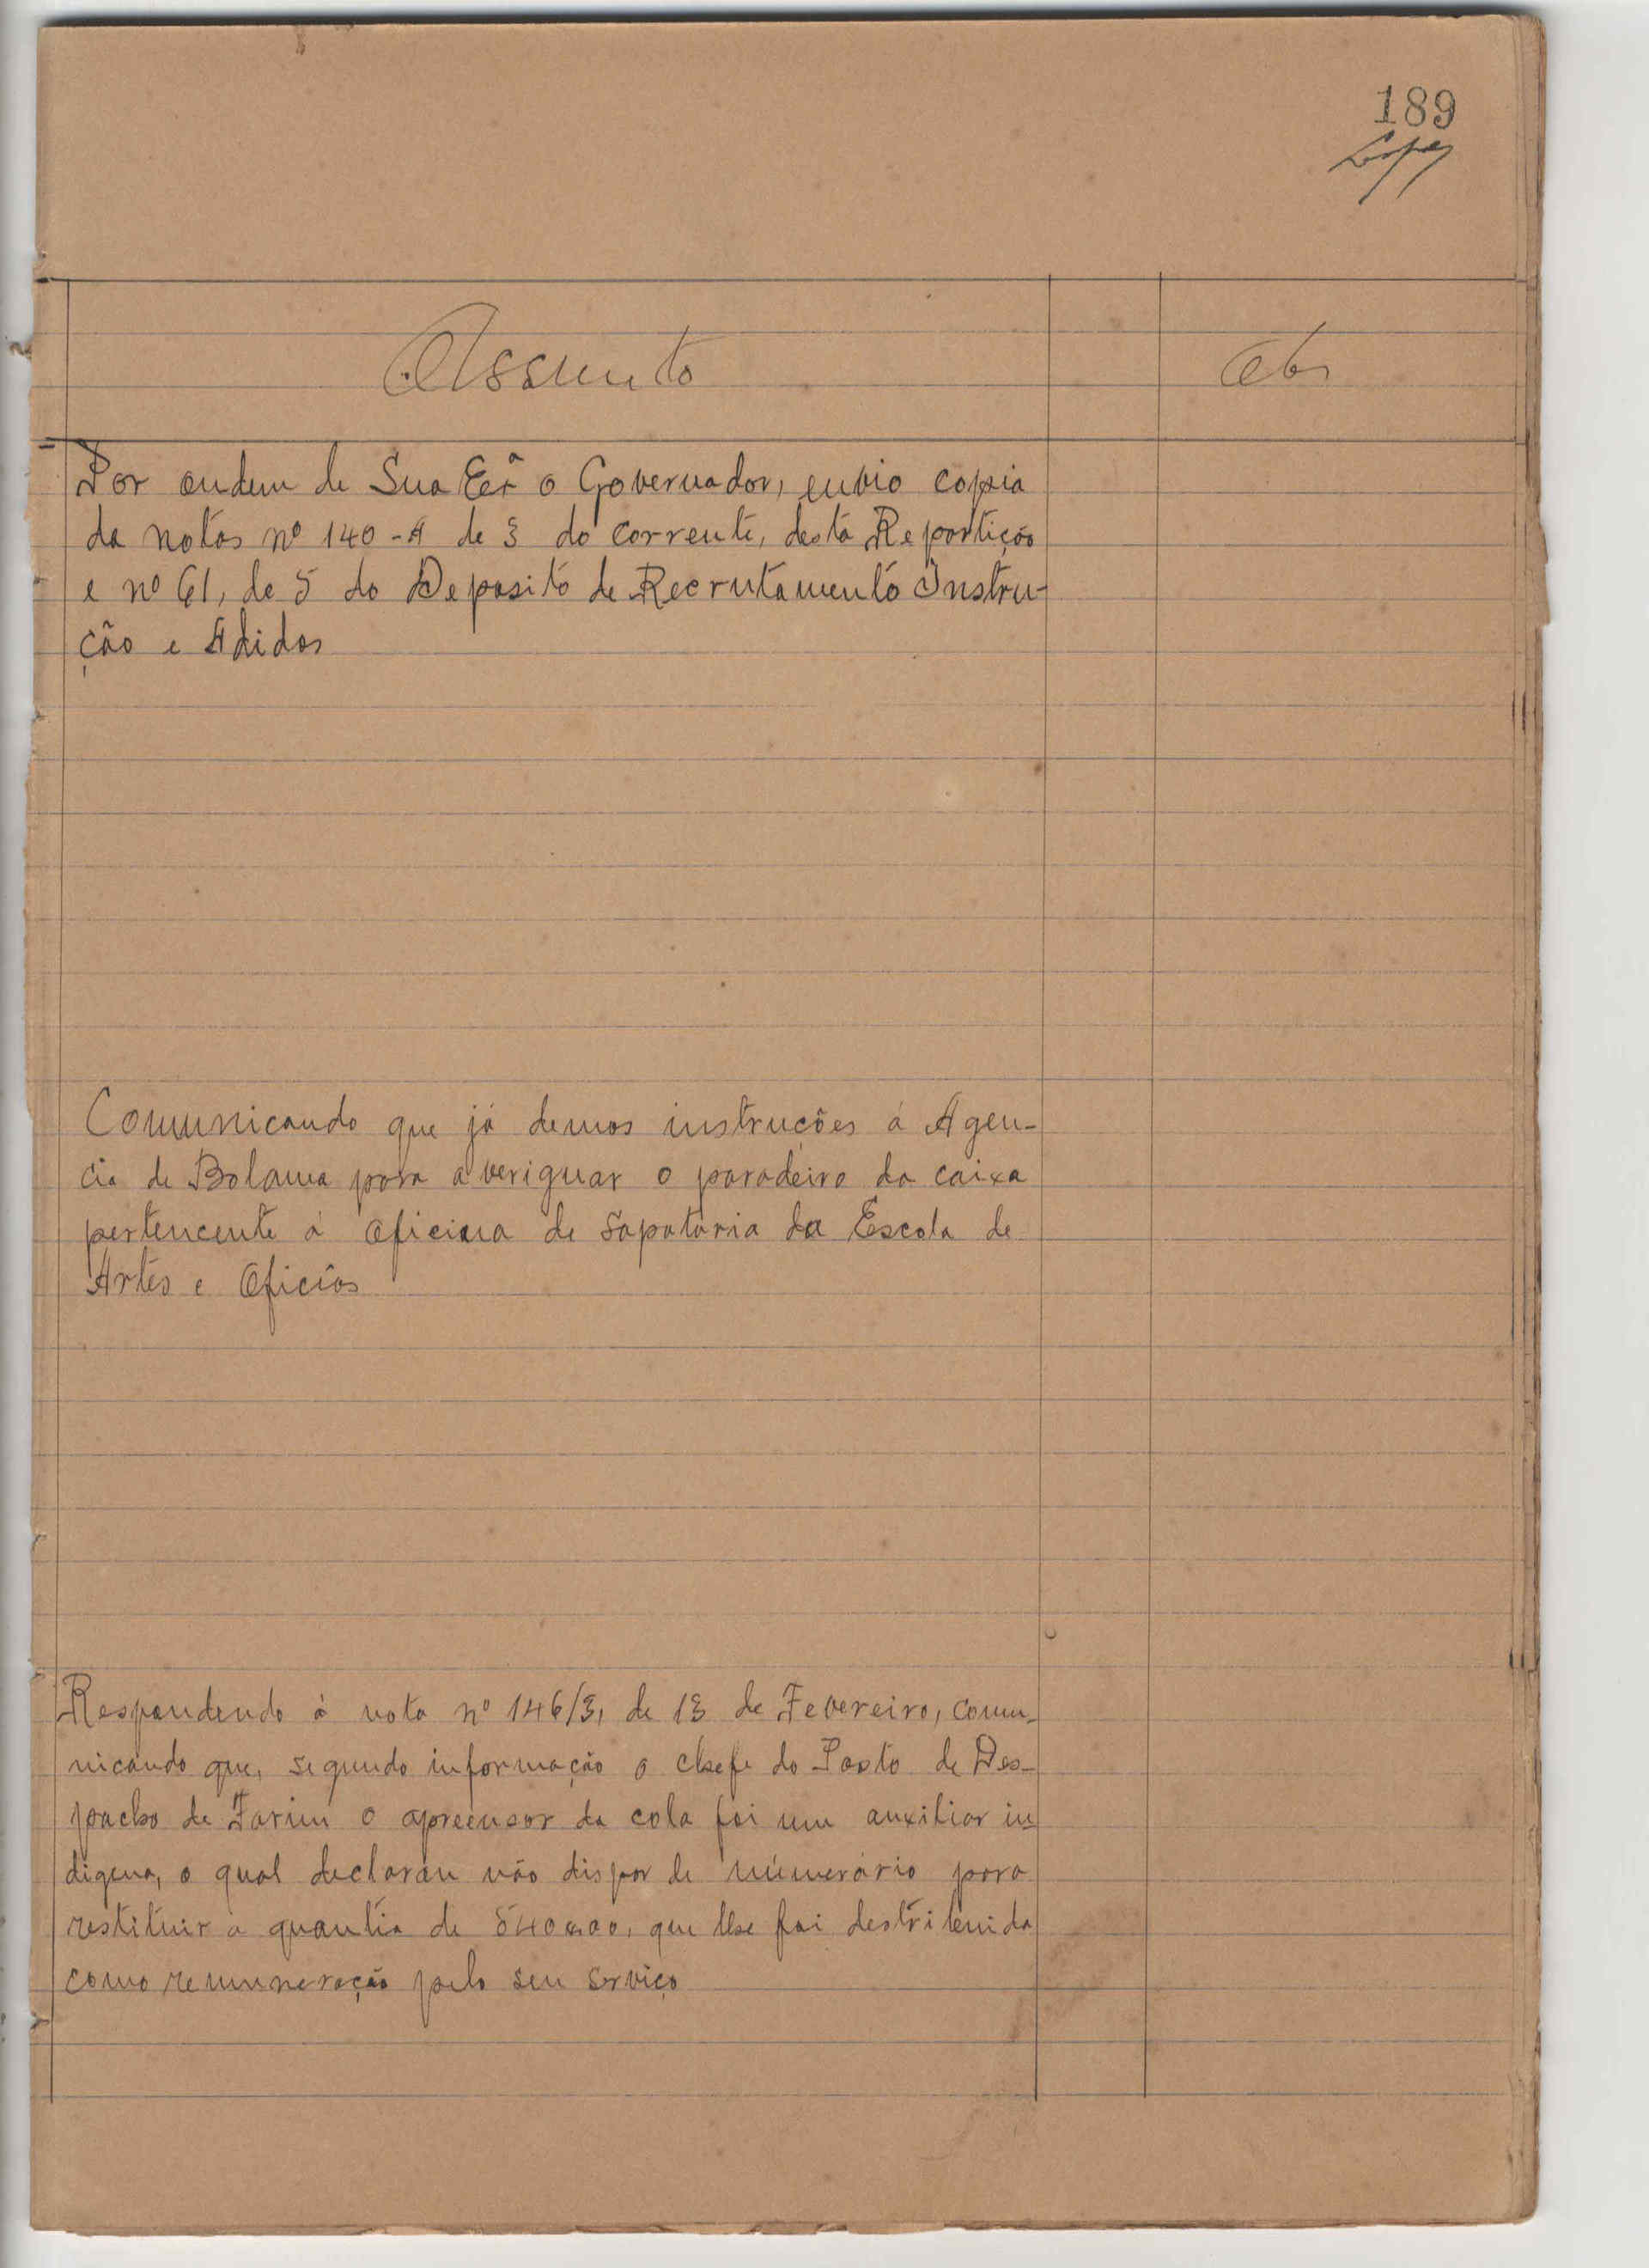 189
Lopes
Assunto
Obs
Por ordem de Sua Exª o Governador, envio copia
da notas nº 140-A de 3 do corrente, desta Repartição
e nº 61, de 5 do Deposito de Recrutamento Instru-
ção e Adidos
Comunicando que já demos instruções á Agen-
cia de Bolama para averiguar o paradeiro da caixa
pertencente á oficina de sapataria da Escola de
Artes e Oficios
Respondendo á nota nº 146/3, de 13 de Fevereiro, comu-
nicando que, segundo informação o chefe do Posto de Des-
pacho de Farim o apreensor da cola foi um auxiliar in
digena, o qual declarou não dispor de númerário para
restituir a quantia de 540$00, que lhe foi destribuida
como remuneração pelo seu serviço